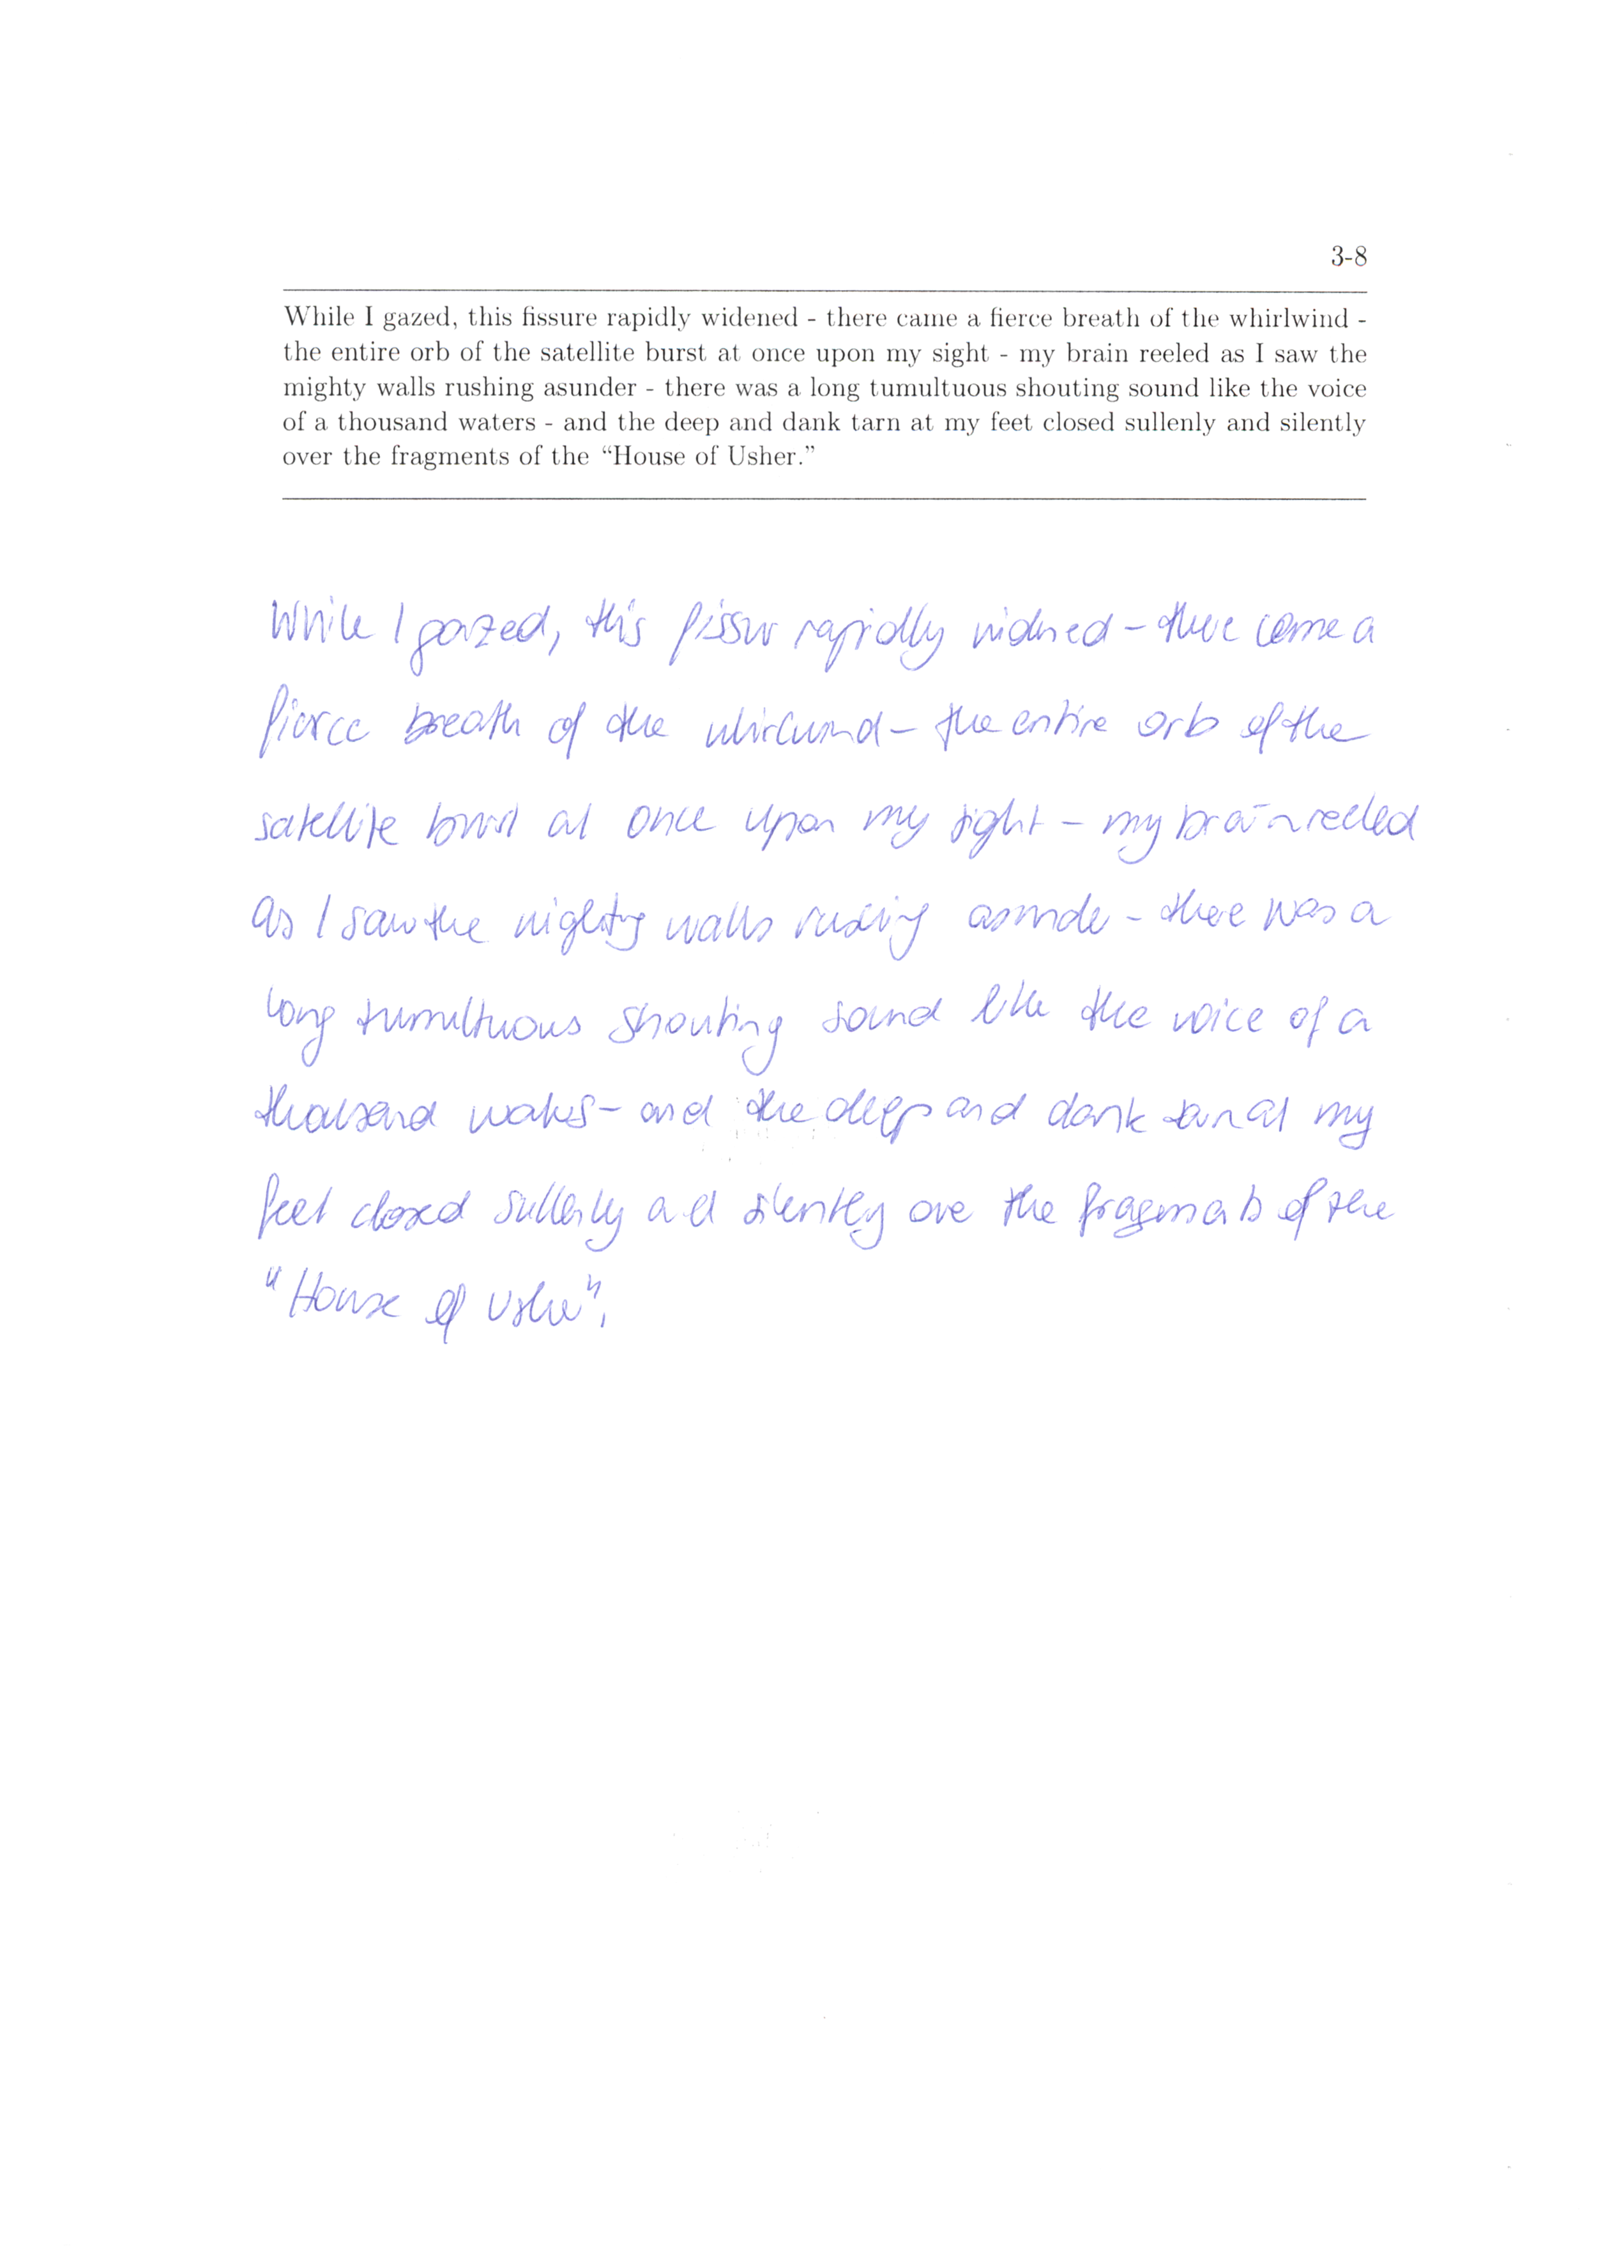 3-8
While I gazed, this fissure rapidly widened - there came a fierce breath of the whirlwind -
the entire orb of the satellite burst at once upon my sight - my brain reeled as I saw the
mighty walls rushing asunder - there was a long tumultuous shouting sound like the voice
of a thousand waters - and the deep and dank tarn at my feet closed sullenly and silently
over the fragments of the “House of Usher.”
While I gazed, this fissur rapidly widened - there came a
fierce breath of the whirlwind - the entire orb of the
satellite burst at once upon my sight - my brain reeled
as I saw the mighty walls rushing asunder - there was a
long tumultuous shouting sound like the voice of a
thousand waters - and the deep and dank tarn at my
feet closed sullenly and silently over the fragments of the
"House of Usher".